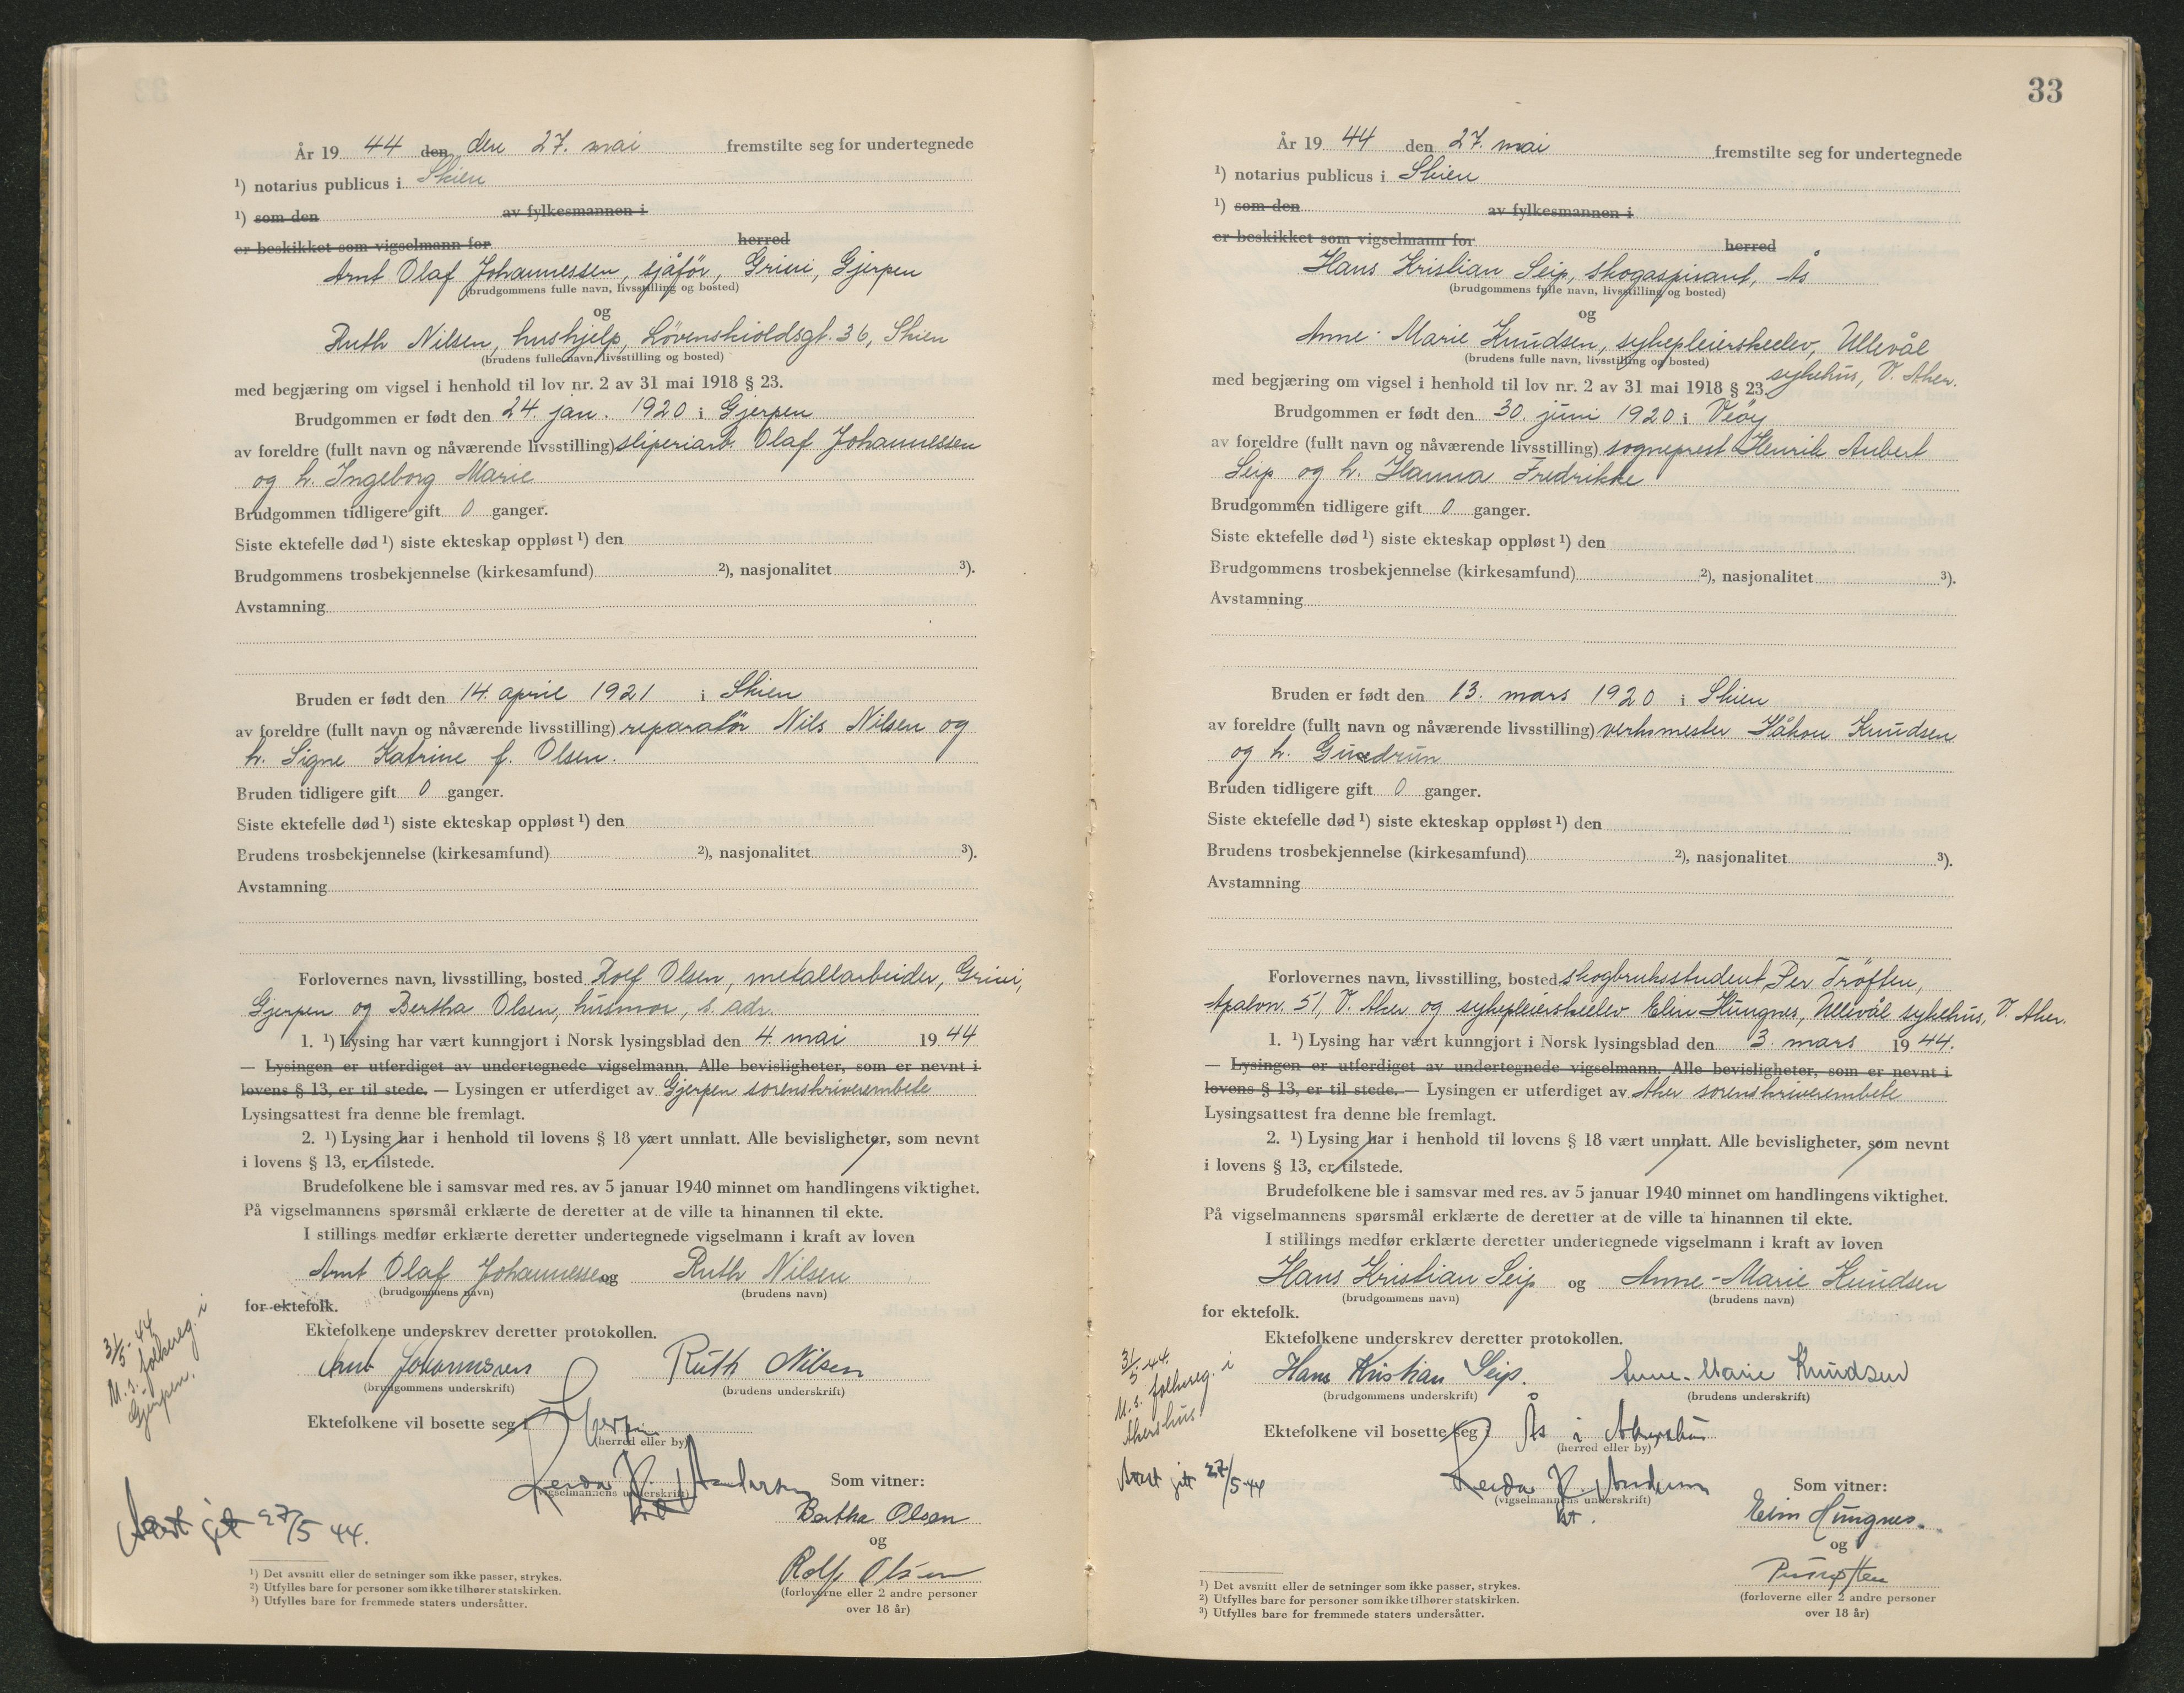 År 19 44 den den 27. mai fremstilte seg for undertegnede
¹) notarius publicus i Skien
¹) som den av fylkesmannen i
er beskikket som vigselmann for herred
Arnt Olaf Johannessen, sjåfør, Grini, Gjerpen
(brudgommens fulle navn, livsstilling og bosted)
og
Ruth Nilsen, hushjelp, Løvenskioldsgt. 36, Skien
(brudens fulle navn, livsstilling og bosted)
med begjæring om vigsel i henhold til lov nr. 2 av 31 mai 1918 § 23.
Brudgommen er født den 24. jan. 1920 i Gjerpen
av foreldre (fullt navn og nåværende livsstilling) sliperiarb. Olaf Johannessen
og h. Ingeborg Marie
Brudgommen tidligere gift 0 ganger.
Siste ektefelle død ¹) siste ekteskap oppløst ¹) den
Brudgommens trosbekjennelse (kirkesamfund) ²), nasjonalitet ³).
Avstamning
Bruden er født den 14. april 1921 i Skien
av foreldre (fullt navn og nåværende livsstilling) reparatør Nils Nilsen og
h. Signe Katrine f. Olsen.
Bruden tidligere gift 0 ganger.
Siste ektefelle død ¹) siste ekteskap oppløst ¹) den
Brudens trosbekjennelse (kirkesamfund) ²), nasjonalitet ³).
Avstamning
Forlovernes navn, livsstilling, bosted Rolf Olsen, metallarbeider, Grini,
Gjerpen og Bertha Olsen, husmor, s. adr.
1. ¹) Lysing har vært kunngjort i Norsk lysingsblad den 4. mai 1944
— Lysingen er utferdiget av undertegnede vigselmann. Alle bevisligheter, som er nevnt i
lovens § 13, er til stede. — Lysingen er utferdiget av Gjerpen sorenskriverembete
Lysingsattest fra denne ble fremlagt.
2. ¹) Lysing har i henhold til lovens § 18 vært unnlatt. Alle bevisligheter, som nevnt
i lovens § 13, er tilstede.
Brudefolkene ble i samsvar med res. av 5 januar 1940 minnet om handlingens viktighet.
På vigselmannens spørsmål erklærte de deretter at de ville ta hinannen til ekte.
I stillings medfør erklærte deretter undertegnede vigselmann i kraft av loven
Arnt Olaf Johannessen og Ruth Nilsen
(brudgommens navn) (brudens navn)
for ektefolk.
Ektefolkene underskrev deretter protokollen.
Arnt Johannssen Ruth Nilsen
(brudgommens underskrift) (brudens underskrift)
Ektefolkene vil bosette seg i Gjerpen
(herred eller by)
31/5-44
M. s. folkereg. i
Gjerpen.
(vigselmannens underskrift)
Som vitner:
Bertha Olsen
og
Rolf Olsen
(forloverne eller 2 andre personer
over 18 år)
Attest gitt 27/5 44.
¹) Det avsnitt eller de setninger som ikke passer, strykes.
²) Utfylles bare for personer som ikke tilhører statskirken.
³) Utfylles bare for fremmede staters undersåtter.
33
År 19 44 den 27. mai fremstilte seg for undertegnede
¹) notarius publicus i Skien
¹) som den av fylkesmannen i
er beskikket som vigselmann for herred
Hans Kristian Seip, skogaspirant, Ås
(brudgommens fulle navn, livsstilling og bosted)
og
Anne-Marie Knudsen, sykepleierskeelev, Ullevål
(brudens fulle navn, livsstilling og bosted)
sykehus, V. Aker.
med begjæring om vigsel i henhold til lov nr. 2 av 31 mai 1918 § 23.
Brudgommen er født den 30. juni 1920 i Veøy
av foreldre (fullt navn og nåværende livsstilling) sogneprest Henrik Aubert
Seip og h. Hanna Fredrikke
Brudgommen tidligere gift 0 ganger.
Siste ektefelle død ¹) siste ekteskap oppløst ¹) den
Brudgommens trosbekjennelse (kirkesamfund) ²), nasjonalitet ³).
Avstamning
Bruden er født den 13. mars 1920 i Skien
av foreldre (fullt navn og nåværende livsstilling) verksmester Håkon Knudsen
og h. Gudrun
Bruden tidligere gift 0 ganger.
Siste ektefelle død ¹) siste ekteskap oppløst ¹) den
Brudens trosbekjennelse (kirkesamfund) ²), nasjonalitet ³).
Avstamning
Forlovernes navn, livsstilling, bosted skogbruksstudent Per Trøften,
Apalvn. 51, V. Aker og sykepleierskeelev Elin Hungnes, Ullevål sykehus, V. Aker.
1. ¹) Lysing har vært kunngjort i Norsk lysingsblad den 3. mars 1944.
— Lysingen er utferdiget av undertegnede vigselmann. Alle bevisligheter, som er nevnt i
lovens § 13, er til stede. — Lysingen er utferdiget av Aker sorenskriverembete
Lysingsattest fra denne ble fremlagt.
2. ¹) Lysing har i henhold til lovens § 18 vært unnlatt. Alle bevisligheter, som nevnt
i lovens § 13, er tilstede.
Brudefolkene ble i samsvar med res. av 5 januar 1940 minnet om handlingens viktighet.
På vigselmannens spørsmål erklærte de deretter at de ville ta hinannen til ekte.
I stillings medfør erklærte deretter undertegnede vigselmann i kraft av loven
Hans Kristian Seip og Anne-Marie Knudsen
(brudgommens navn) (brudens navn)
for ektefolk.
Ektefolkene underskrev deretter protokollen.
Hans Kristian Seip. Anne-Marie Knudsen
(brudgommens underskrift) (brudens underskrift)
Ektefolkene vil bosette seg i Ås i Akershus
(herred eller by)
31/5-44.
M. s. folkereg. i
Akershus.
Attest gitt 27/5 44
(vigselmannens underskrift)
Som vitner:
Elin Hungnes.
og
Per Trøften
(forloverne eller 2 andre personer
over 18 år)
¹) Det avsnitt eller de setninger som ikke passer, strykes.
²) Utfylles bare for personer som ikke tilhører statskirken.
³) Utfylles bare for fremmede staters undersåtter.